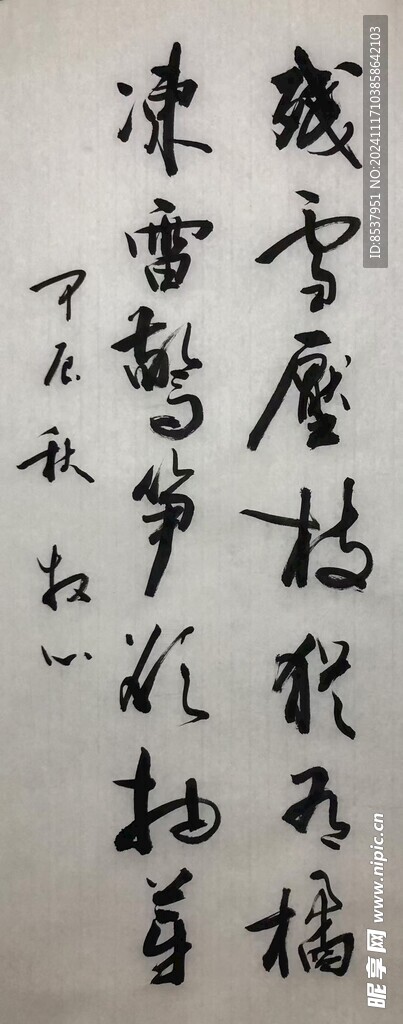 残雪壓枝猶有橘
凍雷驚笋欲抽芽
甲辰秋 牧心
ID:8537951 NO:20241117103858642103
昵享网 www.nipic.cn